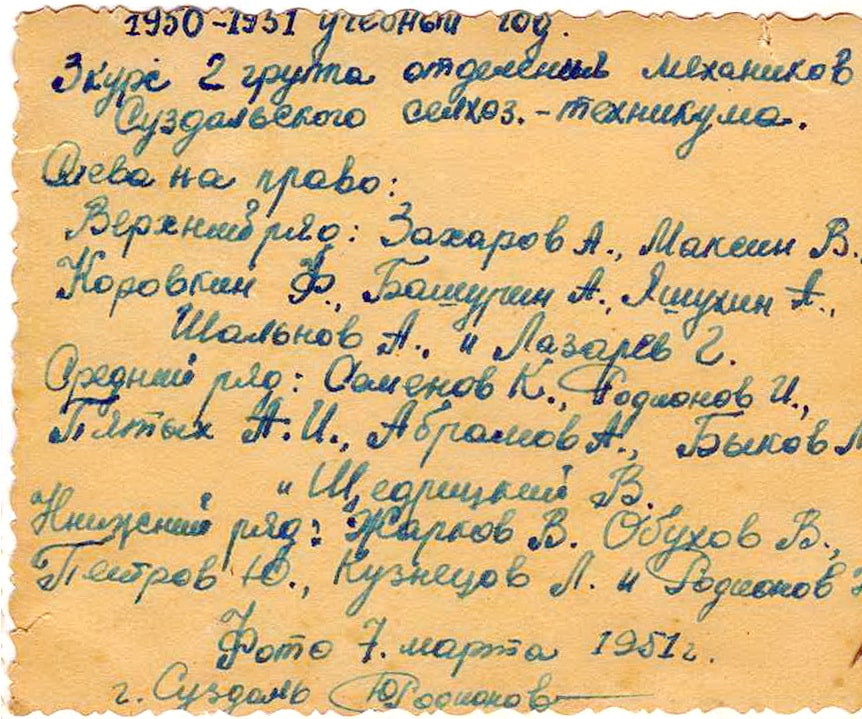 1950-1951 учебный год.
3 курс 2 група отделения механиков
Суздальского селхоз.-техникума.
Слева на право:
Верхний ряд: Захаров А., Максин В.,
Коровкин Ф., Башурин А., Яшухин А.,
Шальнов А., и Лазарев Г.
Средний ряд: Семенов К., Родионов И.,
Пятых А.И., Абрамов А., Быков
и Щедрицкий В.
Нижний ряд: Жарков В. Обухов В.,
Петров Ю., Кузнецов Л. и Родионов
Фото 7. марта 1951г.
г. Суздаль ЮРодионов